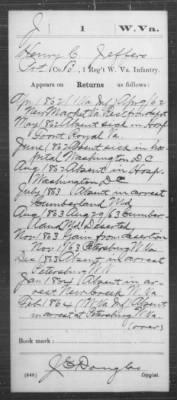 J 1 W.Va.
Henry C. Jeffers
Co. B, 1 Reg't W. Va. Infantry.
Appears on Returns as follows:
Apr 1862
New Market Va
May 1862 Absent sick in Hosp
Front Royal Va.
June 1862 Absent sick in hos-
pital Washington D.C.
Aug 1862 Absent in Hosp.
Washington D.C.
July 1863 Absent in arrest
Cumberland Md
Aug 1863 Aug 29/63 Cumber-
land Md Deserted
Nov 1863 from desertion
Nov 1/63 Petersburg W.Va.
Dec 1863 Absent in arrest
Petersburg W.Va
Jan 1864 Absent in ar-
rest New Creek W.Va
Feb 1864 Absent
in arrest at Petersburg W.Va
(over)
Book mark:
J. C. Douglas
(546) Copyist.